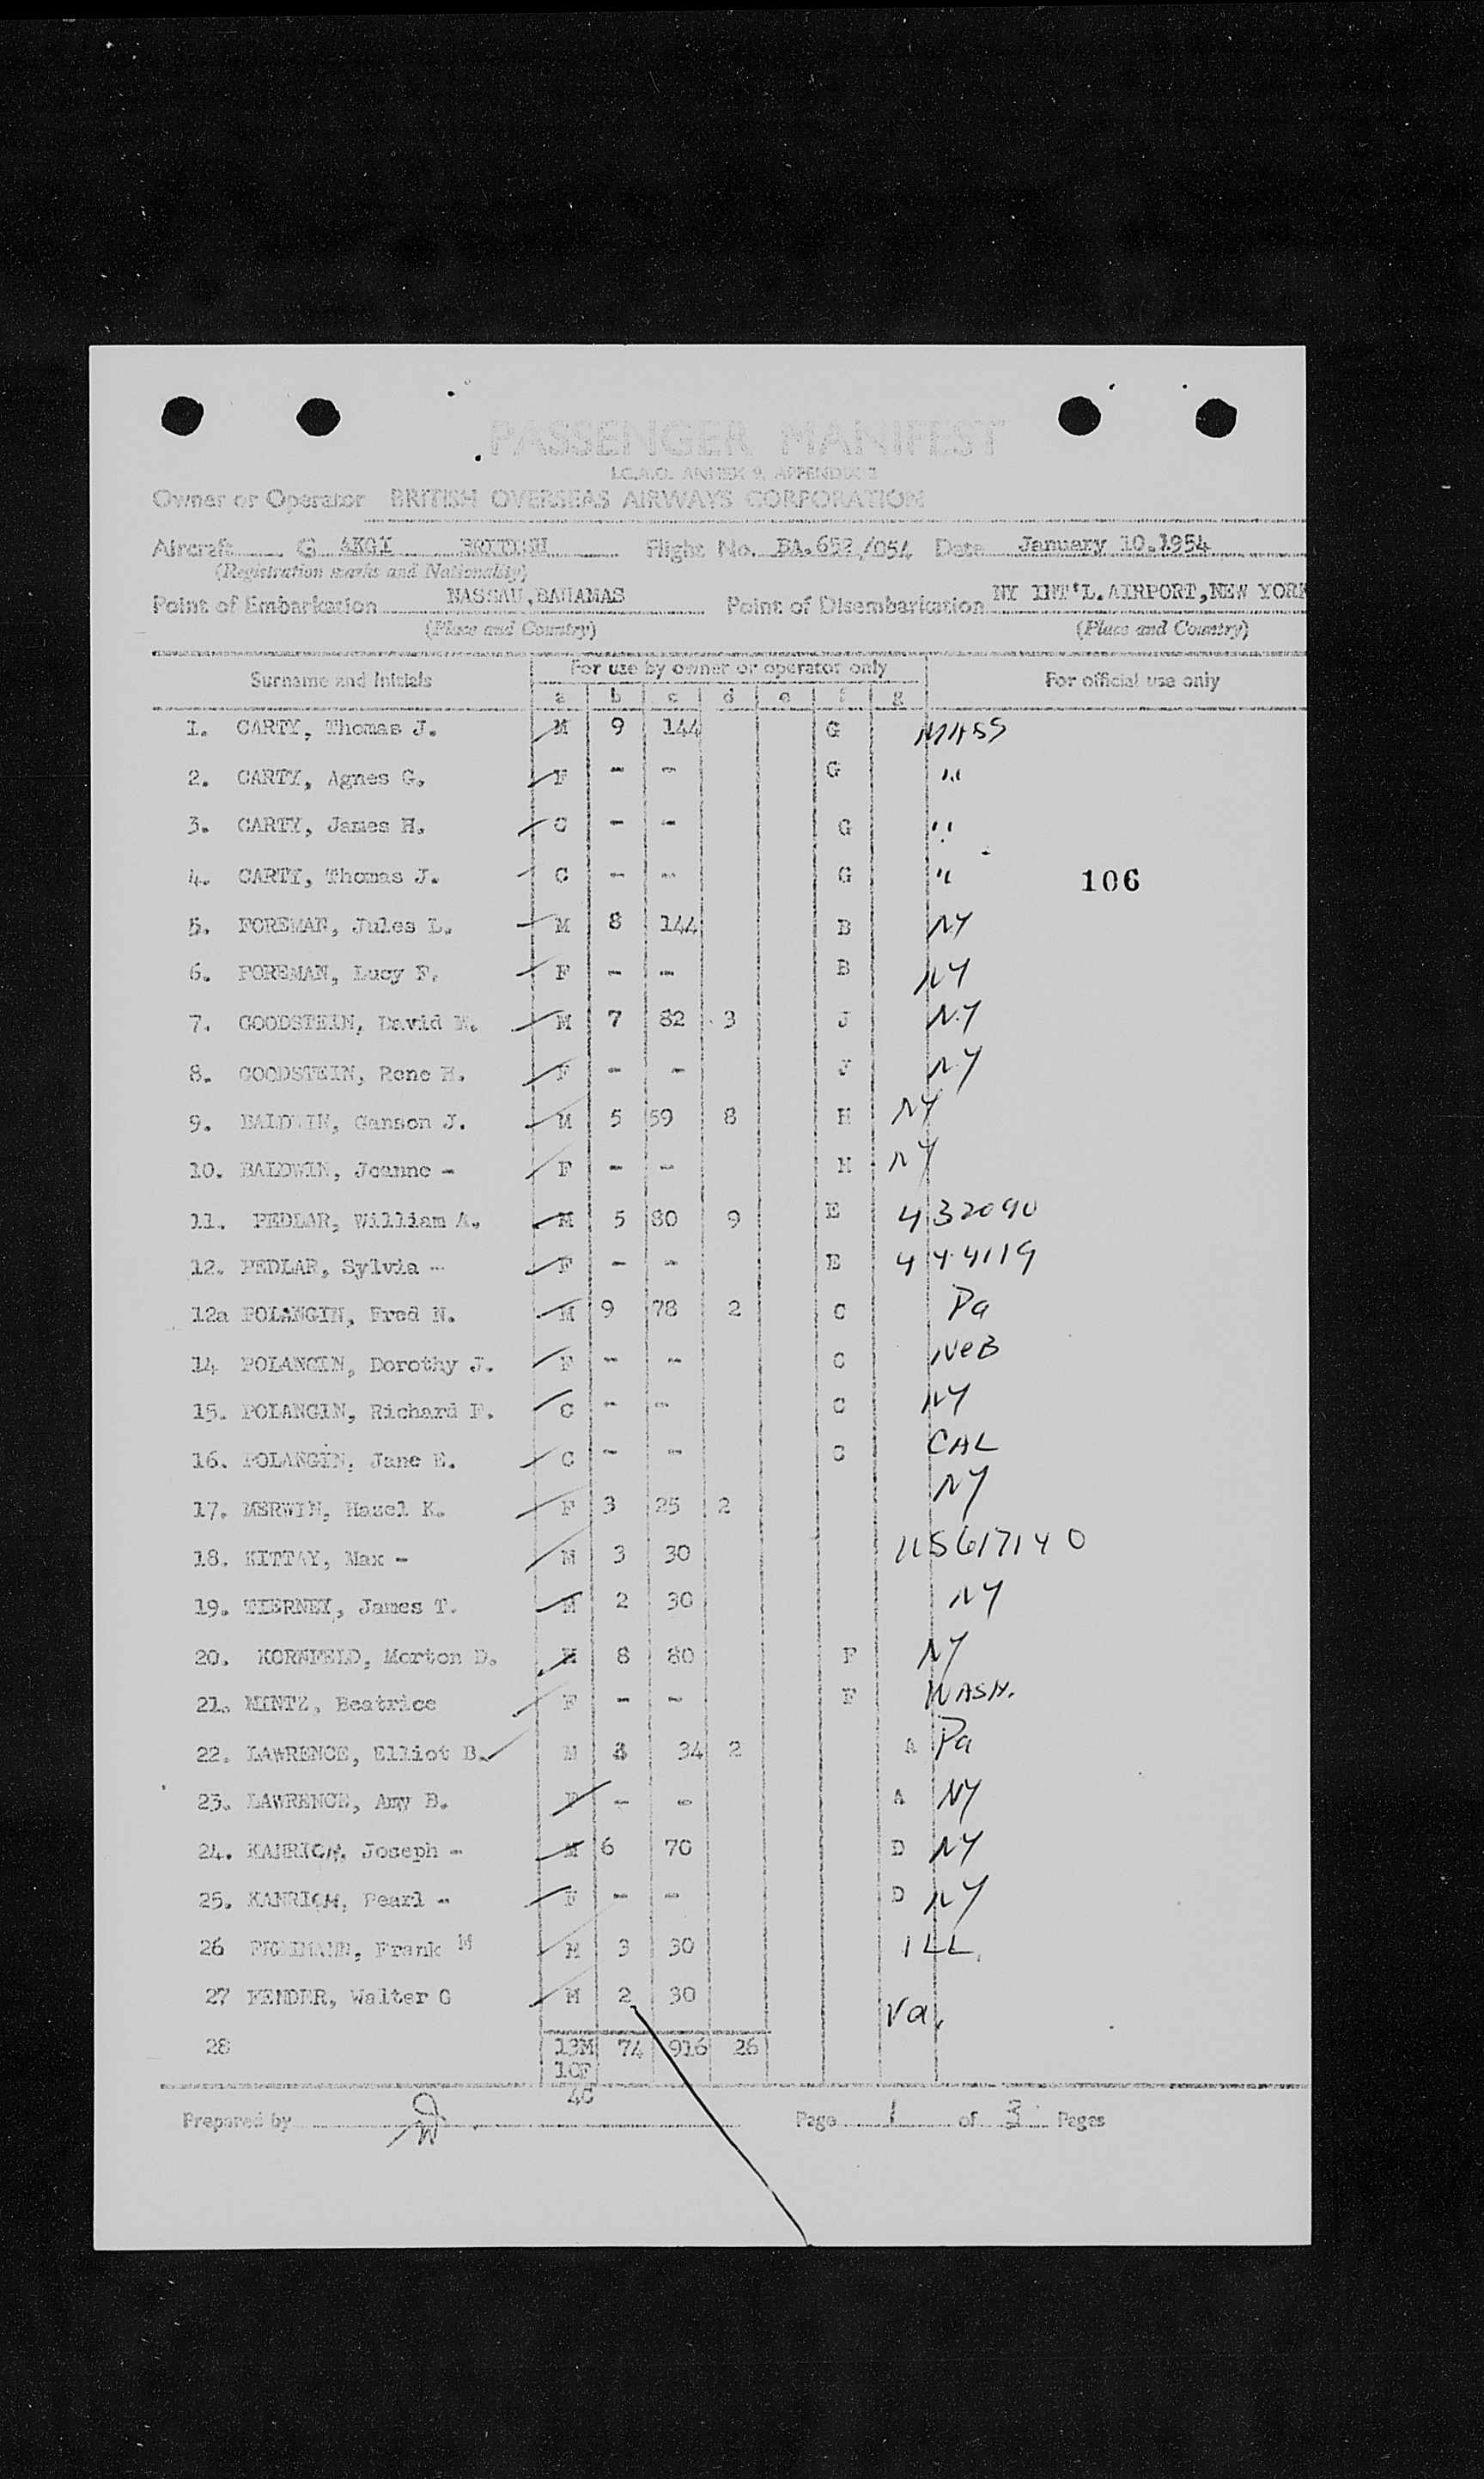 PASSENGER MANIFEST
I.C.A.O. ANNEX 9, APPENDIX 2
Owner or Operator BRITISH OVERSEAS AIRWAYS CORPORATION
Aircraft G AKGI BRITISH Flight No. BA.652/054 Date January 10.1954
(Registration marks and Nationality)
Point of Embarkation NASSAU, BAHAMAS Point of Disembarkation NY INT'L.AIRPORT,NEW YORK
(Place and Country) (Place and Country)
Surname and Initials For use by owner or operator only For official use only
a b c d e f g
1. CARTY, Thomas J. M 9 144 G MASS
2. CARTY, Agnes G. F - - G "
3. CARTY, James H. C - - G "
4. CARTY, Thomas J. C - - G " 106
5. FOREMAN, Jules L. M 8 144 B NY
6. FOREMAN, Lucy F. F - - B NY
7. GOODSTEIN, David M. M 7 82 3 J NY
8. GOODSTEIN, Rene H. F - - J NY
9. BALDWIN, Ganson J. M 5 59 8 H NY
10. BALDWIN, Jeanne - F - - H NY
11. PEDLAR, William A. M 5 80 9 E 432090
12. PEDLAR, Sylvia - F - - E 444119
12a POLANGIN, Fred N. M 9 78 2 C Pa
14 POLANGIN, Dorothy J. F - - C NeB
15. POLANGIN, Richard F. C - - C NY
16. POLANGIN, Jane E. C - - C CAL
17. MERWIN, Hazel K. F 3 25 2 NY
18. KITTAY, Max - M 3 30 US617140
19. TIERNEY, James T. M 2 30 NY
20. KORNFELD, Morton D. M 8 80 F NY
21. MINTZ, Beatrice F - - F WASH.
22. LAWRENCE, Elliot B. M 8 34 2 A Pa
23. LAWRENCE, Amy B. F - - A NY
24. KANRICH, Joseph - M 6 70 D NY
25. KANRICH, Pearl - F - - D NY
26 Frank M M 3 30 ILL.
27 FENDER, Walter G M 2 30 Va.
28 13M 74 916 26
10F
4C
Prepared by Page 1 of 3 Pages